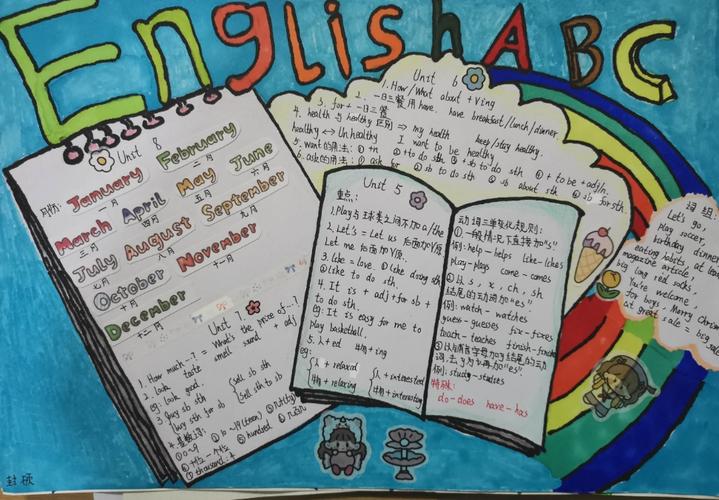 English ABC
Unit 8
月份:
January
一月
February
二月
March
三月
April
四月
May
五月
June
六月
July
七月
August
八月
September
九月
October
十月
November
十一月
December
十二月
Unit 7
1. How much~? = What's the price of~?
2. look taste smell sound + adj
eg: look good.
3. buy sb sth
buy sth for sb
sell sb sth
sell sth to sb
4. 基数词:
① 0~9
hundred
thousand
Unit 6
1. How/What about + Ving
2. 一日三餐用 have. have breakfast/lunch/dinner
3. for + 一日三餐
4. health 与 healthy 区别 ⇒ my health keep/stay healthy.
healthy ↔ Unhealthy I want to be healthy.
5. want的用法: ① +n ② +to do sth ③ +sb to do sth ④ + to be +adj/n.
6. ask的用法: ① ask for ② sb to do sth ③ sb about sth ④ sb for sth.
Unit 5
重点:
1. Play与球类之间不加a/the
2. Let's = Let us 后面加V原
Let me 后面加V原
3. like = love. ① like doing sth
② like to do sth.
4. It is + adj + for sb +
to do sth.
eg: It is easy for me to
play basketball.
5. 人+ed 物+ing
eg:
人 + relaxed
物 + relaxing
人 + interested
物 + interesting
动词三单变化规则:
① 一般情况下直接加"s"
例: help-helps like-likes
play-plays come-comes
② 以 s, x, ch, sh
结尾的动词加"es"
例: watch-watches
guess-guesses fix-fixes
teach-teaches finish-finishes
③ 以辅音字母加y结尾的动
词, 去y为i再加"es".
例: study-studies
特殊:
do-does have-has
词组:
Let's go
play soccer,
birthday dinner
eating habits
magazine article
big long red socks,
You're welcome,
for boys, Merry Christmas
at great sale = big sale